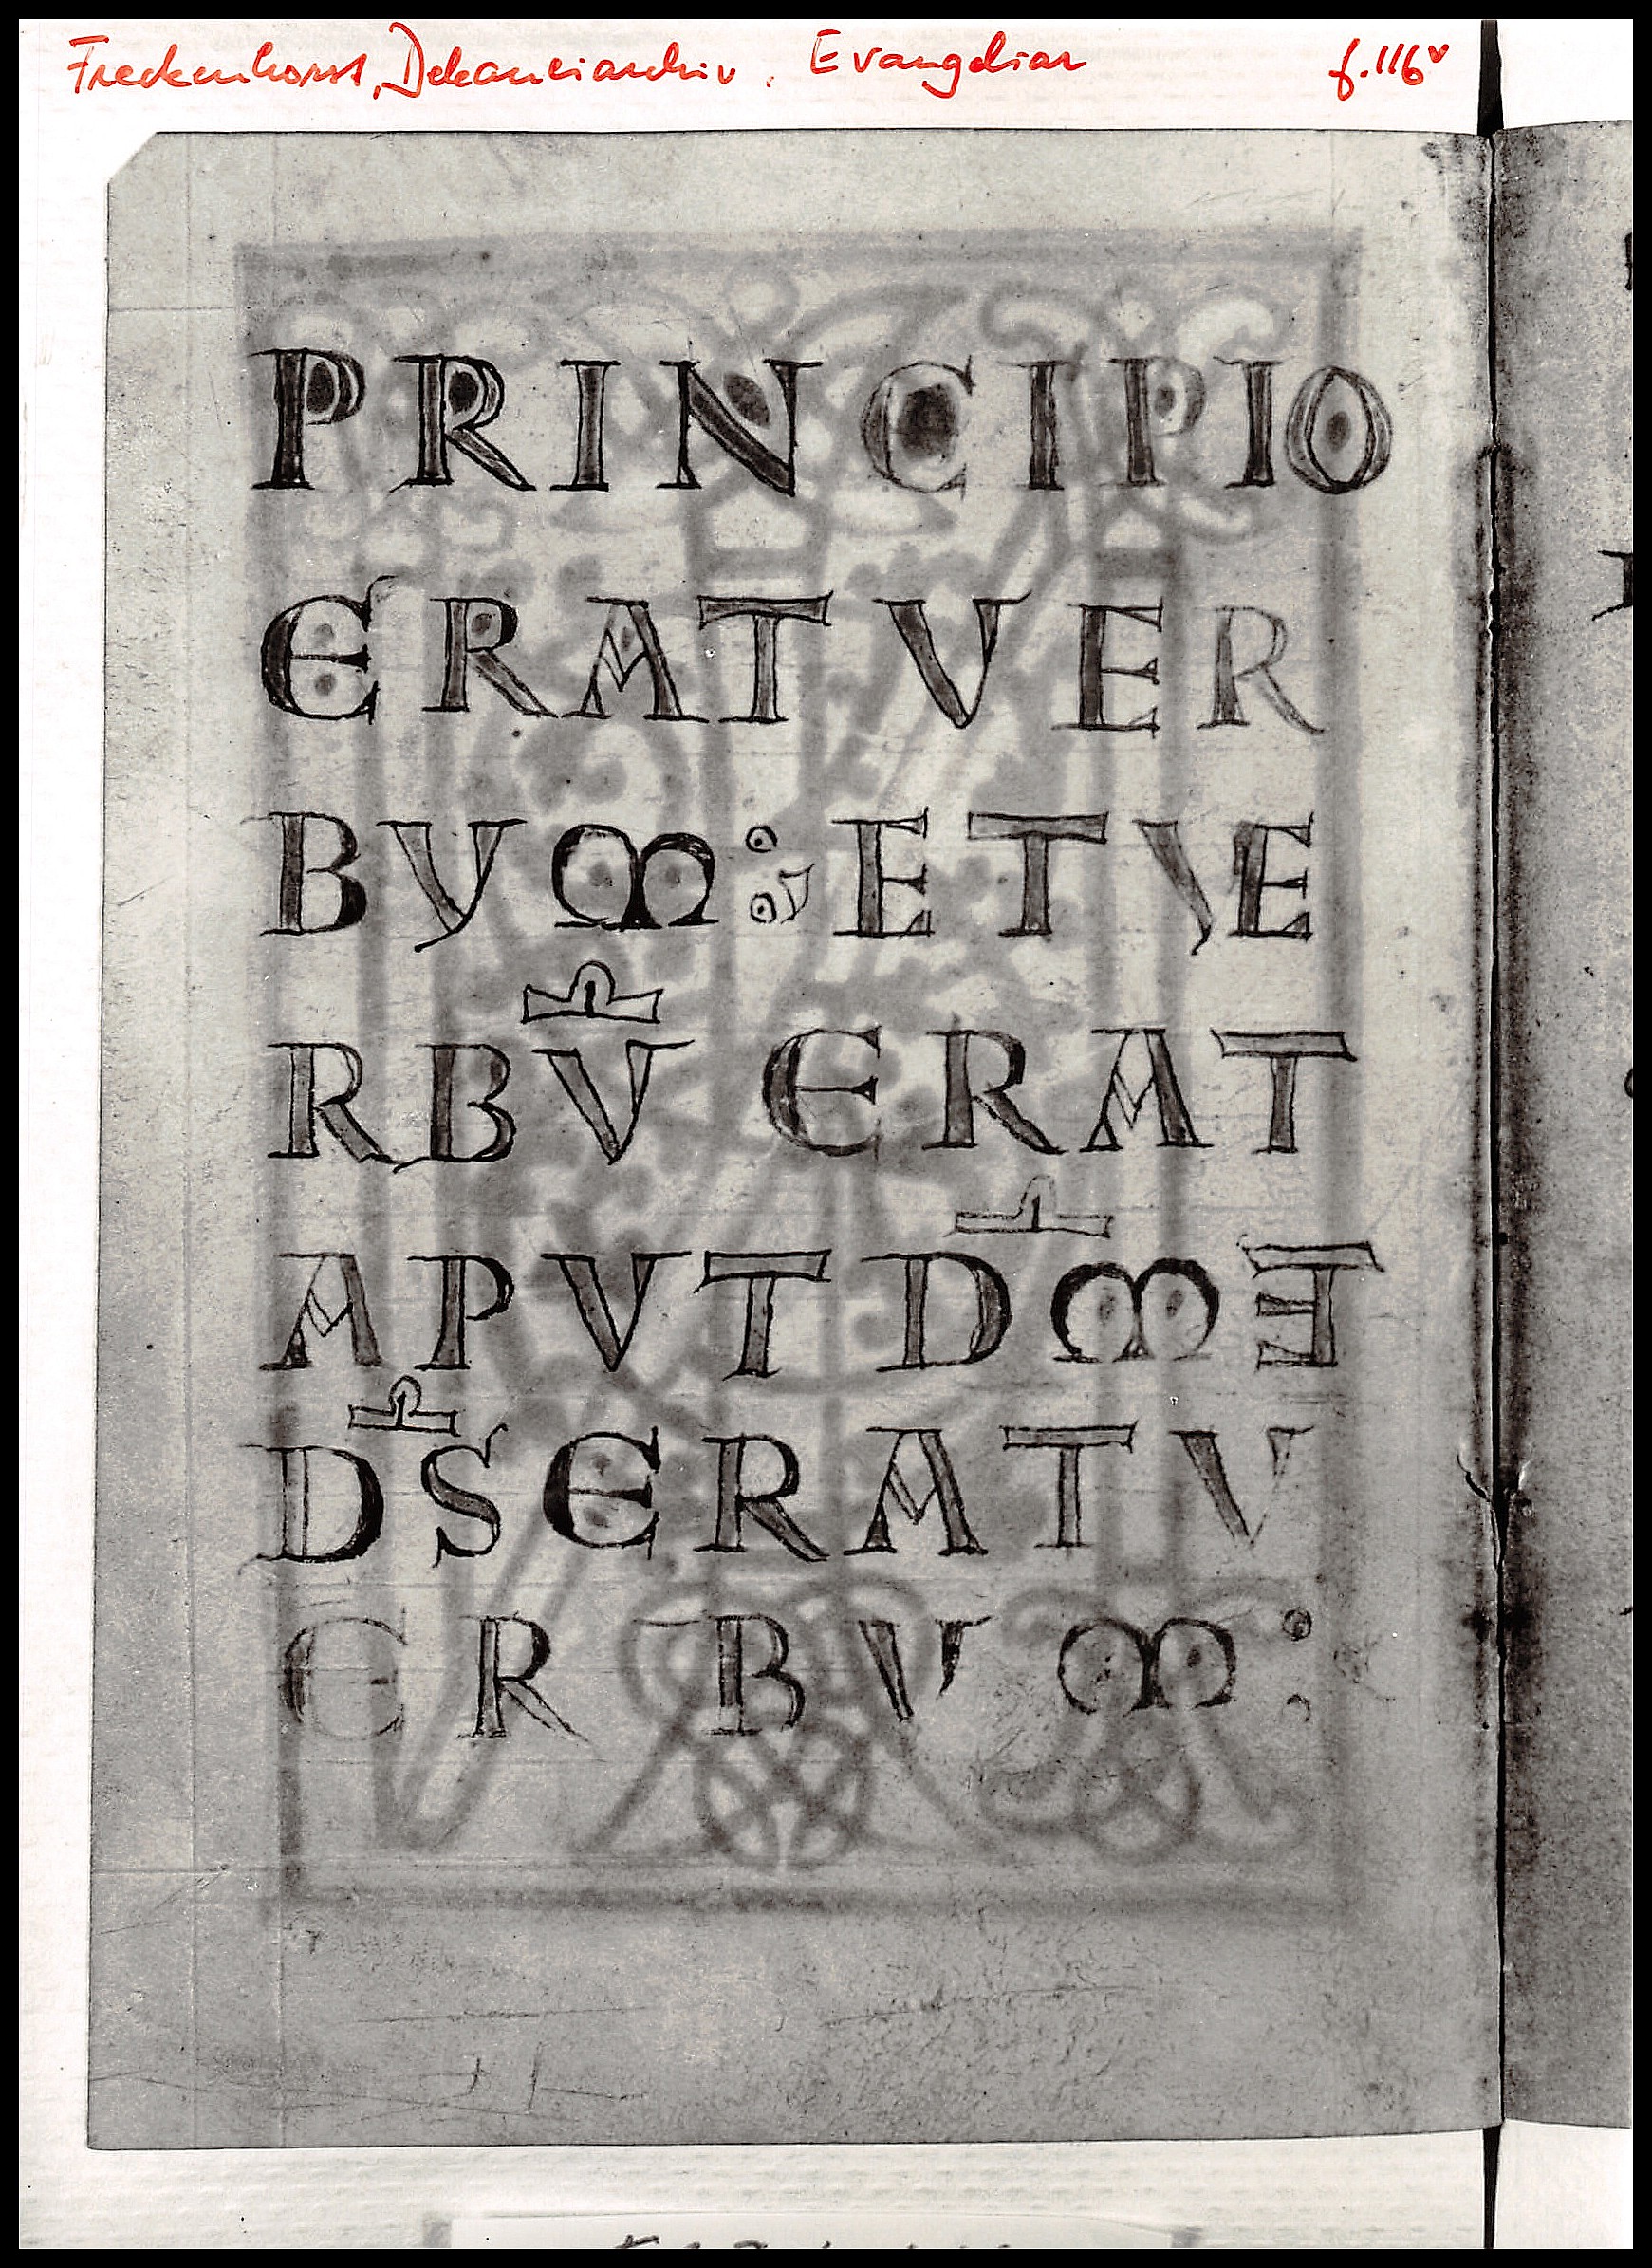 Freckenhorst, Dekaneiarchiv. Evangeliar f.116v
PRINCIPIO
ERAT VER
BUM: ET VE
RBŪ ERAT
APUT DM̄ ET
DS̄ ERAT V
ERBUM: